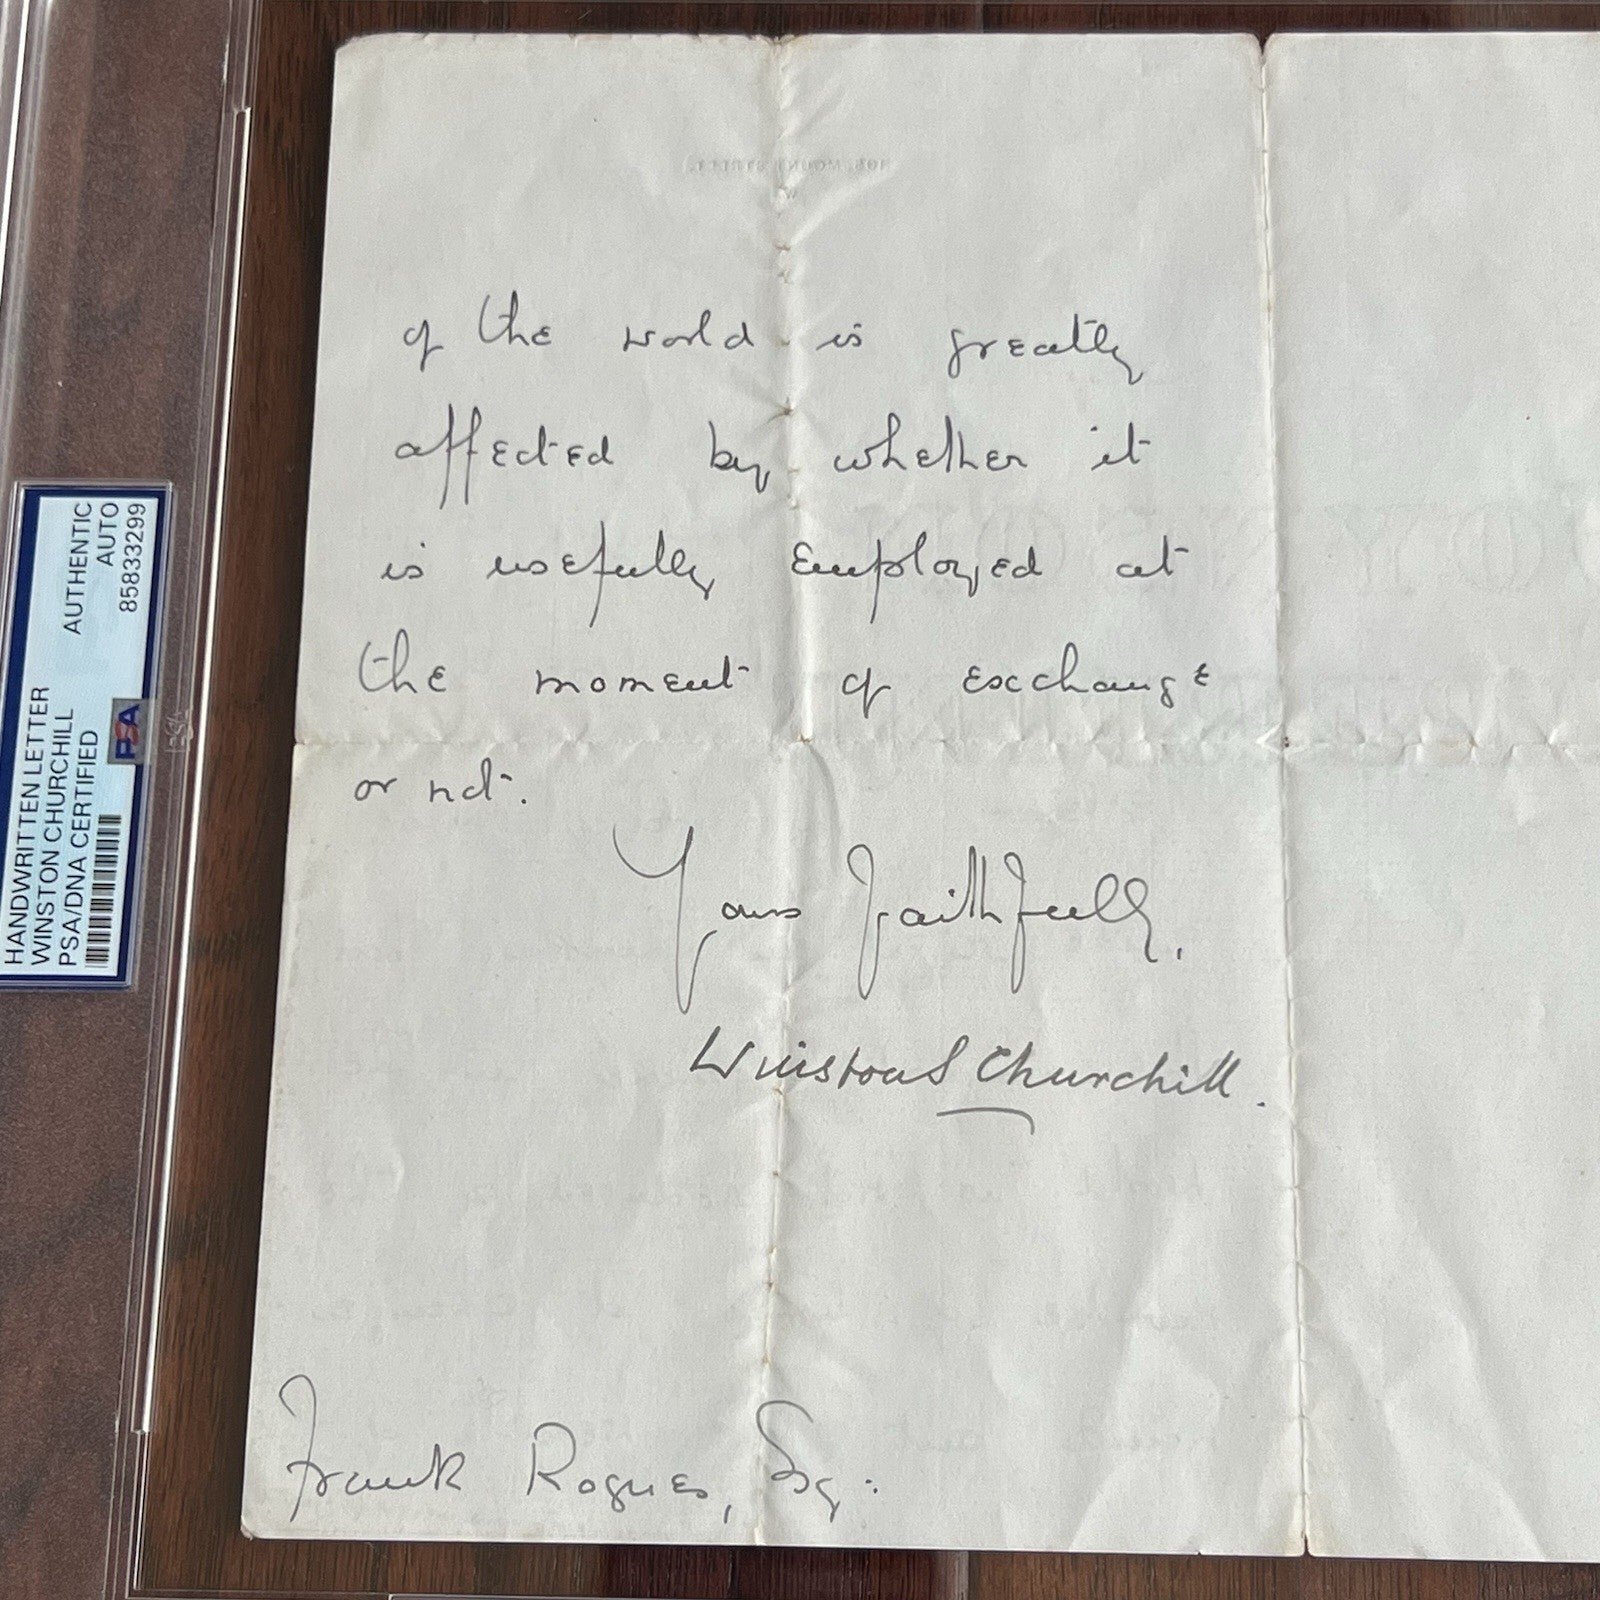 of the world is greatly
affected by whether it
is usefully employed at
the moment of exchange
or not.
Yours faithfully,
Winston S Churchill.
Frank Rogues, Esq:
HANDWRITTEN LETTER
WINSTON CHURCHILL
PSA/DNA CERTIFIED
AUTHENTIC
AUTO
85833299
PSA